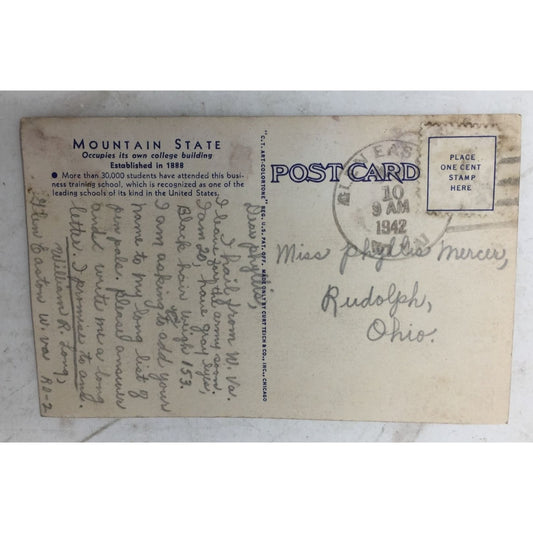 MOUNTAIN STATE
Occupies its own college building
Established in 1888
● More than 30,000 students have attended this busi-
ness training school, which is recognized as one of the
leading schools of its kind in the United States.
"C.T. ART-COLORTONE" REG. U.S. PAT. OFF. MADE ONLY BY CURT TEICH & CO., INC., CHICAGO
POST CARD
PLACE
ONE CENT
STAMP
HERE
EAS
10
9 AM
1942
W.VA.
Miss Phyllis Mercer,
Rudolph,
Ohio.
Dear Phyllis,
I hail from W. Va.
I leave for the army soon.
I am 20, have gray eyes,
Black hair weigh 153.
I am asking you to add your
name to my long list of
pen pals. please answer
and write me a long
letter. I promise to ans.
William R. Long,
Glen Easton W. Va RD-2